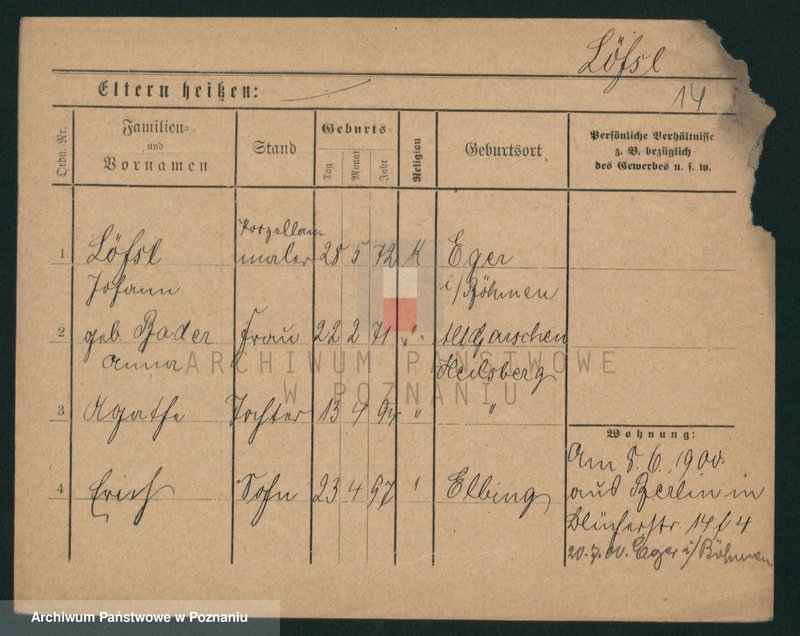 Löfsl
Eltern heißen:
14
Ordn. Nr.
Familien-
und
Vornamen
Stand
Geburts-
Tag
Monat
Jahr
Religion
Geburtsort
Persönliche Verhältnisse
z. B. bezüglich
des Gewerbes u. s. w.
1
Löfsl
Johann
Porzellan-
maler
28 5 72 K
Eger
i/Böhmen
2
geb Bader
Anna
Frau
22 2 71 "
Heilsberg
3 Agathe Tochter 13 4 "
"
4 Erich Sohn 23 4 97 " Elbing
Wohnung:
Am 8.6.1900.
aus Berlin in
Blücherstr. 14 b 4
20.7.00. Eger i/Böhmen
ARCHIWUM PAŃSTWOWE
W POZNANIU
Archiwum Państwowe w Poznaniu